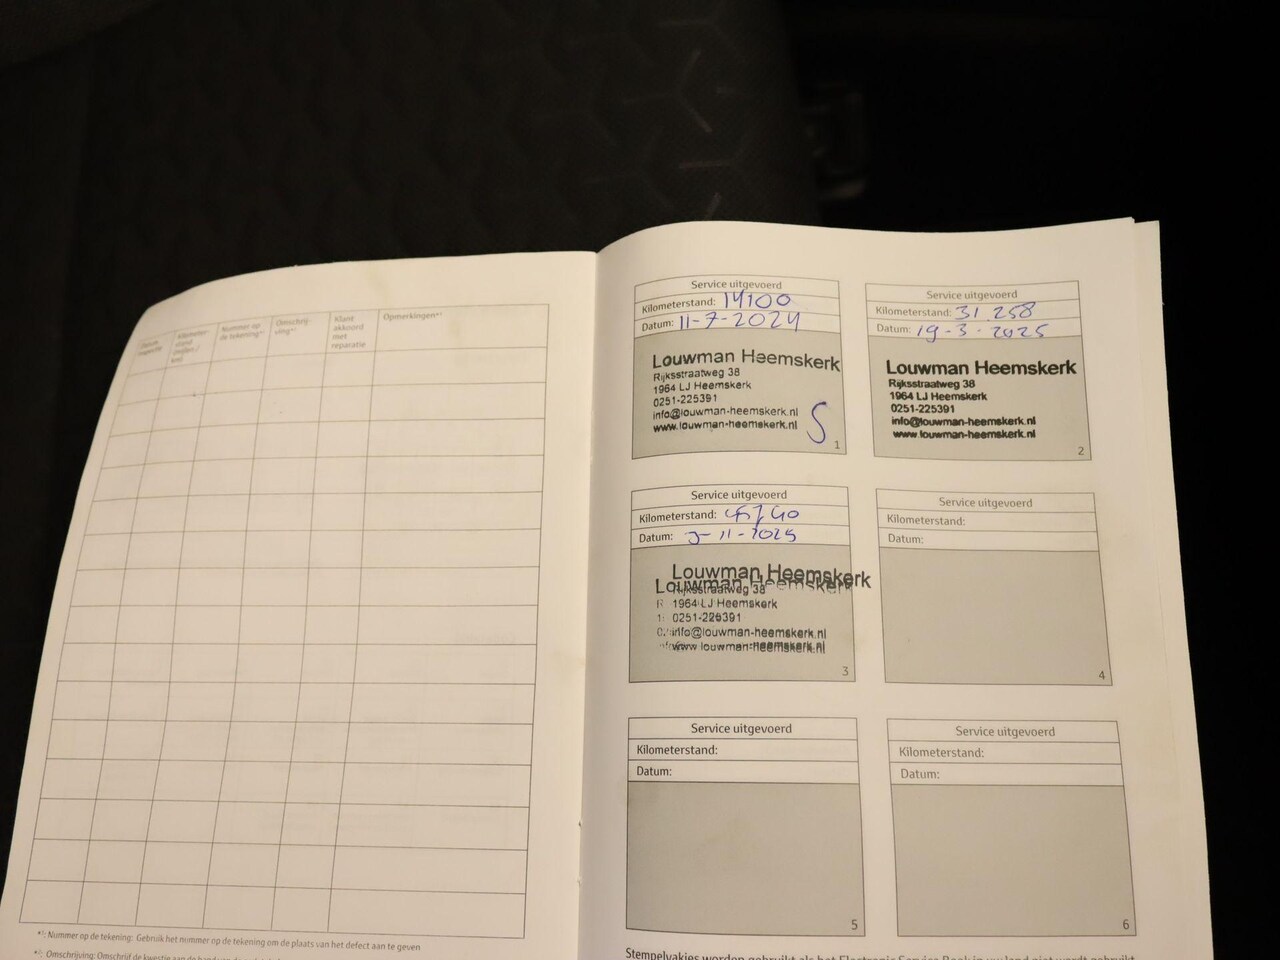 Nummer op de tekening*¹
Omschrij-
ving*²
Klant
akkoord
met
reparatie
Opmerkingen*³
*¹: Nummer op de tekening: Gebruik het nummer op de tekening om de plaats van het defect aan te geven
*²: Omschrijving: Omschrijf de kwestie aan de
Service uitgevoerd
Kilometerstand: 14100
Datum: 11-7-2024
Louwman Heemskerk
Rijksstraatweg 38
1964 LJ Heemskerk
0251-225391
info@louwman-heemskerk.nl
www.louwman-heemskerk.nl
1
Service uitgevoerd
Kilometerstand: 31.258
Datum: 19-3-2025
Louwman Heemskerk
Rijksstraatweg 38
1964 LJ Heemskerk
0251-225391
info@louwman-heemskerk.nl
www.louwman-heemskerk.nl
2
Service uitgevoerd
Kilometerstand:
Datum: 3-11-2025
Louwman Heemskerk
Rijksstraatweg 38
1964 LJ Heemskerk
0251-225391
info@louwman-heemskerk.nl
www.louwman-heemskerk.nl
3
Service uitgevoerd
Kilometerstand:
Datum:
4
Service uitgevoerd
Kilometerstand:
Datum:
5
Service uitgevoerd
Kilometerstand:
Datum:
6
Stempelvakjes worden gebruikt als het Electronic Service Book in uw land niet wordt gebruikt